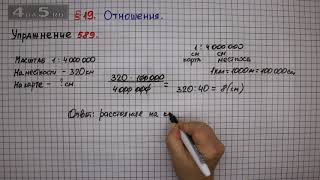 4 на 5.ru
§19. Отношения.
Упражнение 589.
Масштаб 1 : 4 000 000
На местности - 320 км
На карте - ? см
320 · 100 000
4 000 000
=
320 : 40 = 8 (см)
1 : 4 000 000
см см
карта местность
1км = 1000м = 100 000 см
Ответ: расстояние на к